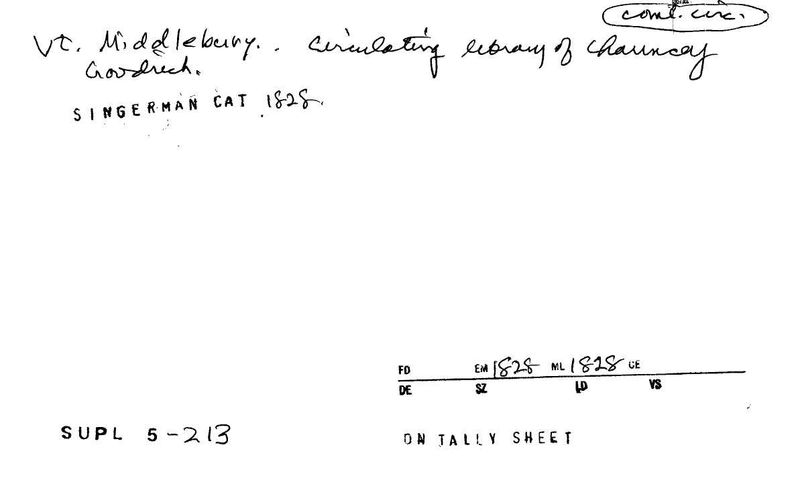 coml. circ.
Vt. Middlebury. . Circulating library of Chauncey
Goodrich.
SINGERMAN CAT 1828.
FD EM 1828 ML 1828 CE
DE SZ LD VS
SUPL 5-213
ON TALLY SHEET